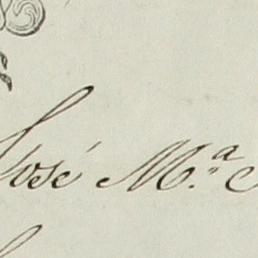 José M.ª